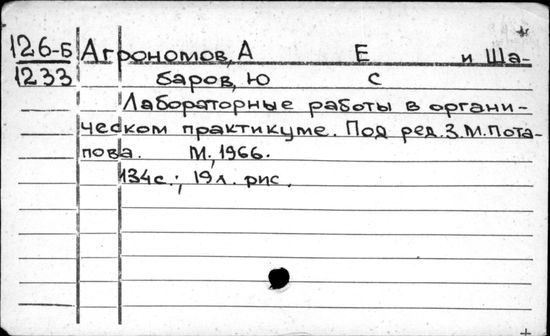 126-Б Агрономов, А Е и Ша-
1233 баров, Ю С
Лабораторные работы в органи-
ческом практикуме. Под ред. З.М.Пота-
пова. М., 1966.
134с.; 19л. рис.